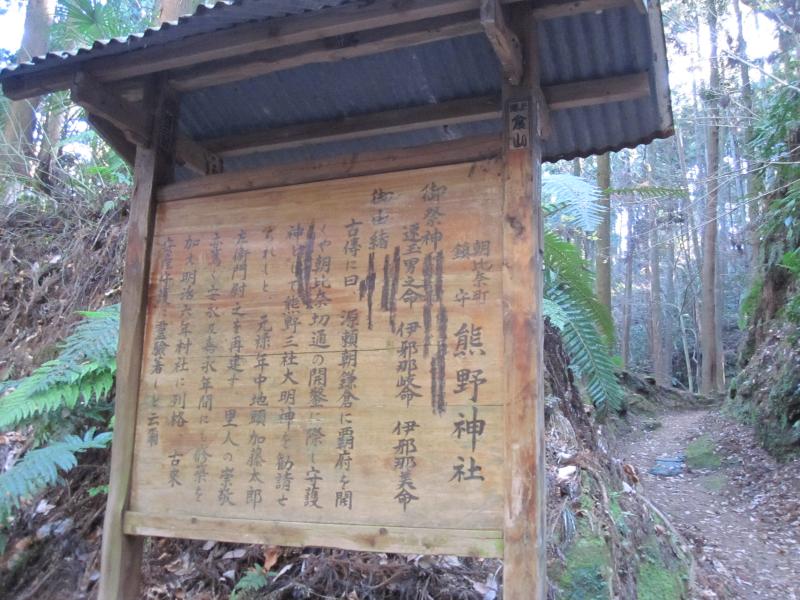 朝比奈町
鎮守
熊野神社
御祭神
速玉男之命 伊邪那岐命 伊邪那美命
御由緒
古傳に曰 源頼朝鎌倉に覇府を開
くや朝比奈切通の開鑿に際し守護
神として熊野三社大明神を勧請せ
られしと 元禄年中地頭加藤太郎
左衛門尉之を再建す 里人の崇敬
亦篤く安永及嘉永年間にも修築を
加え明治六年村社に列格 古来
安産守護に霊験著しと云爾